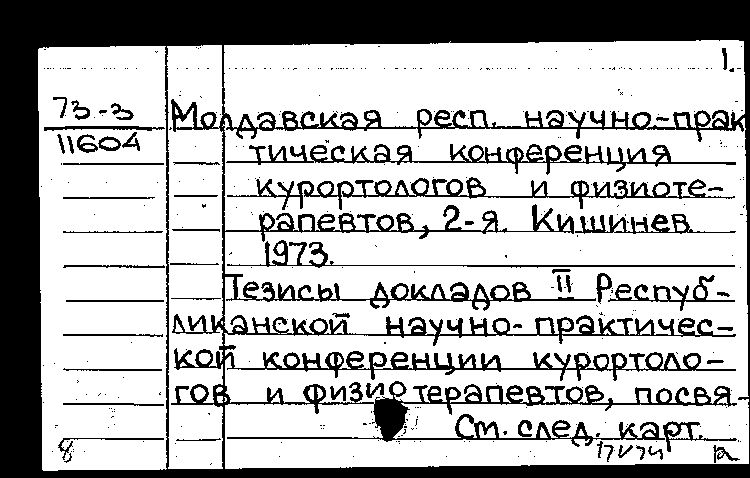 1.
73-3
11604
Молдавская респ. научно-прак
тическая конференция
курортологов и физиоте-
рапевтов, 2-я. Кишинев
1973.
Тезисы докладов II Респуб-
ликанской научно-практичес-
кой конференции курортоло-
гов и физиотерапевтов, посвя-
См. след. карт.
8